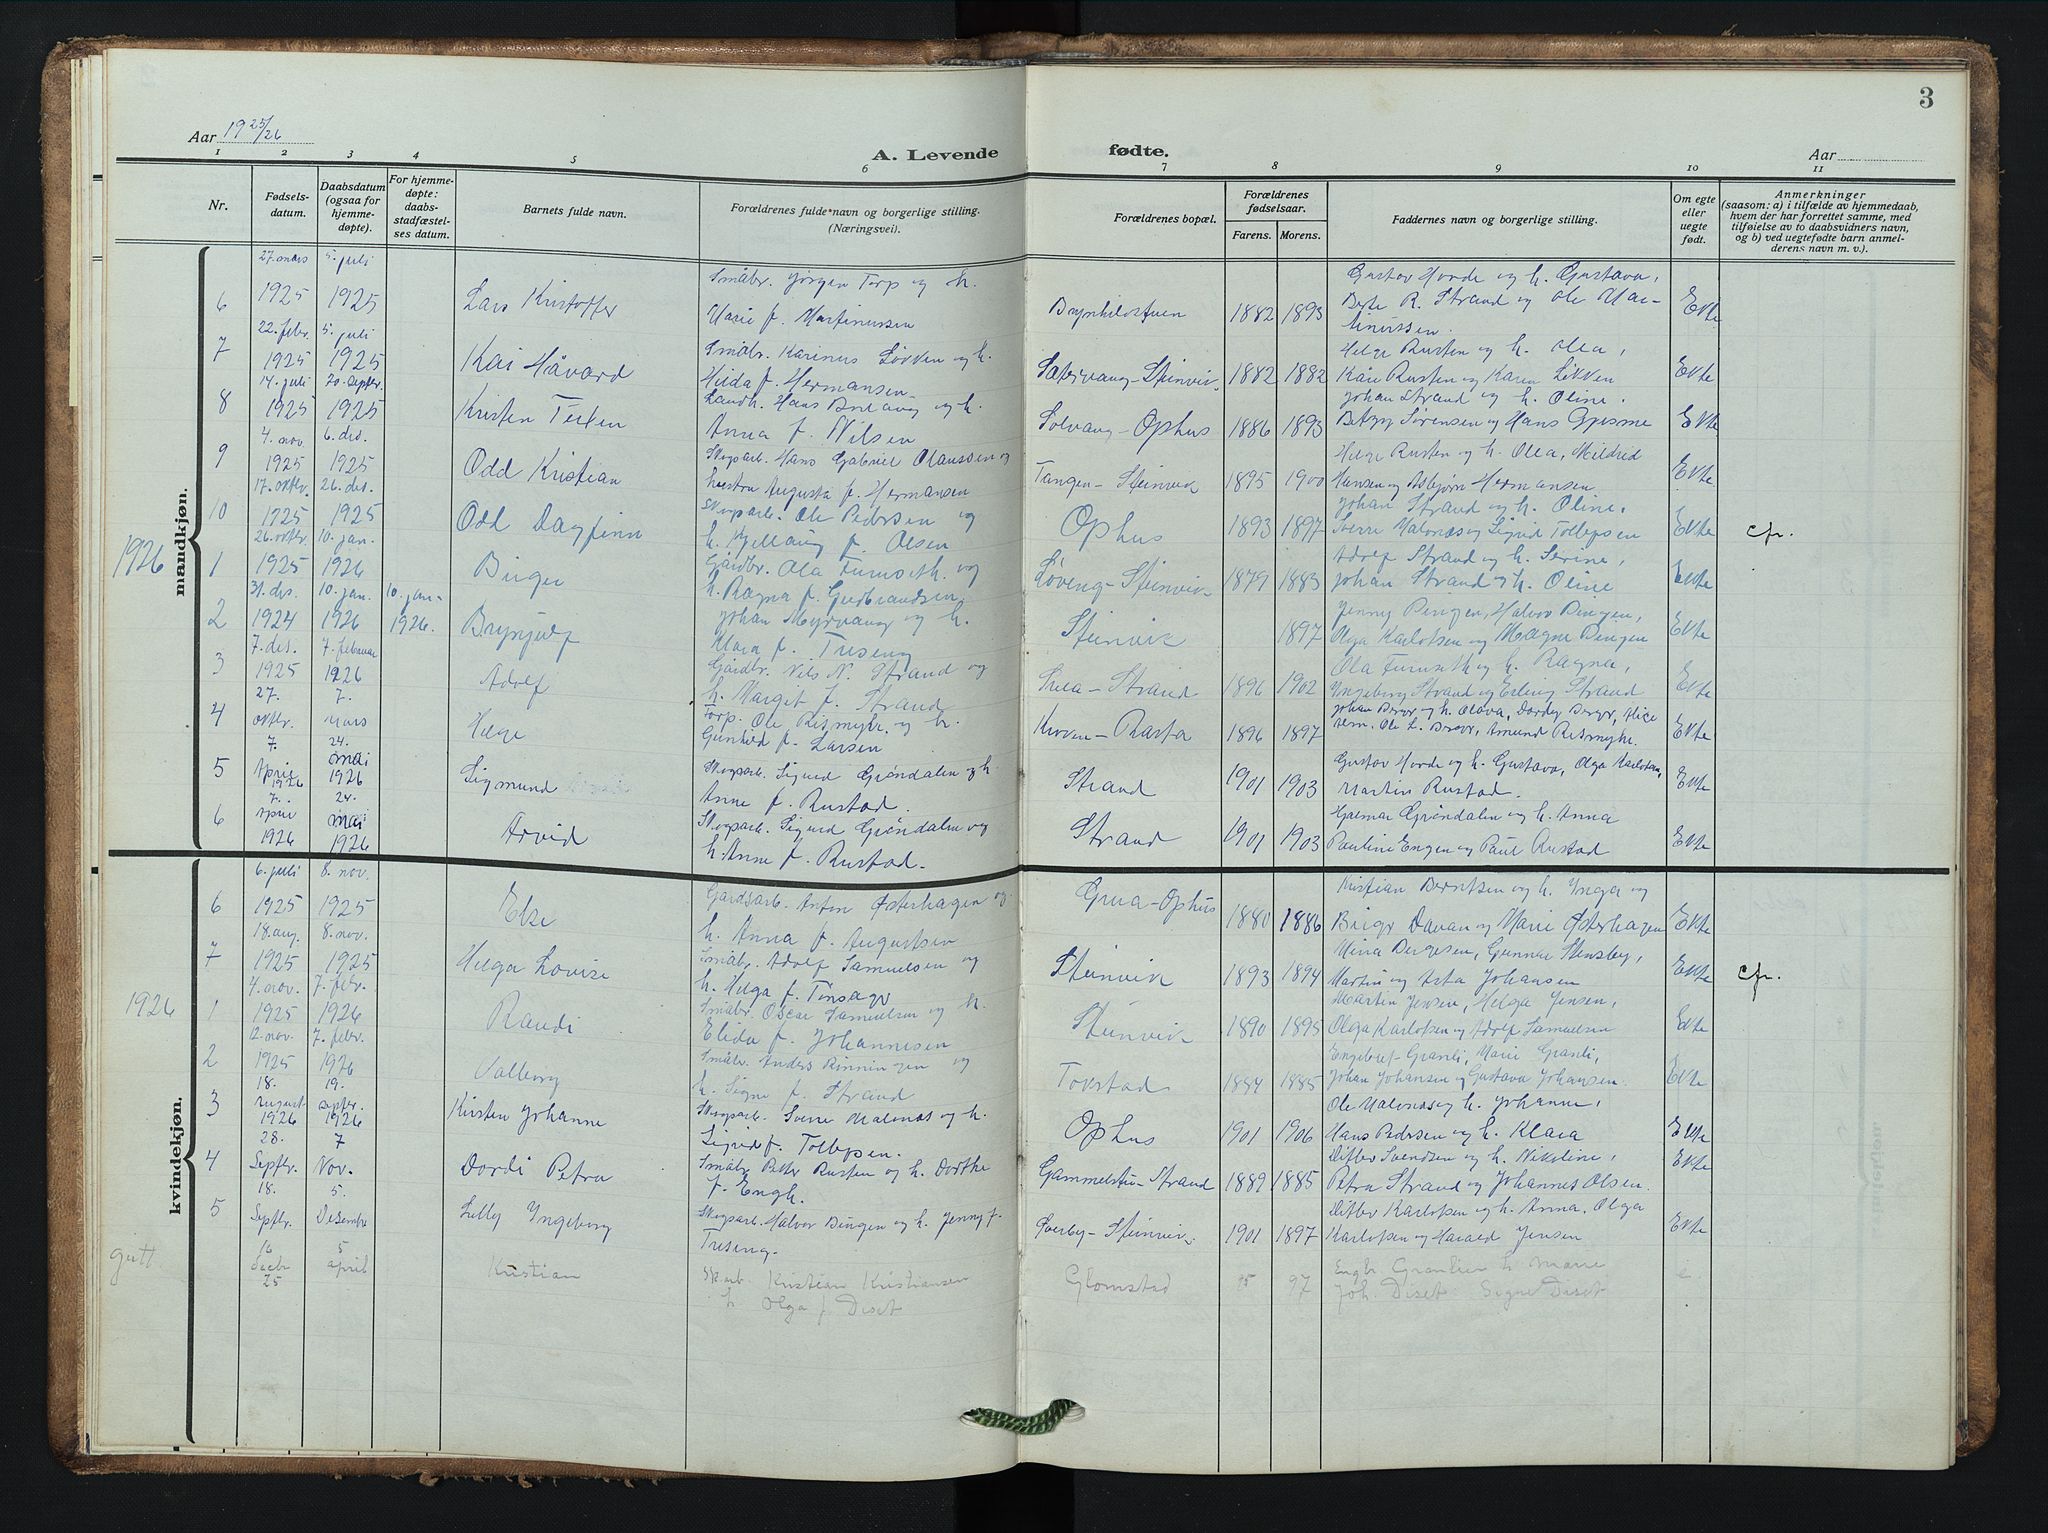 3
Aar 1925/26
A. Levende fødte.
Aar
1 2 3 4 5 6 7 8 9 10 11
Nr.
Fødsels-
datum.
Daabsdatum
(ogsaa for
hjemme-
døpte).
For hjemme-
døpte:
daabs-
stadfæstel-
ses datum.
Barnets fulde navn.
Forældrenes fulde navn og borgerlige stilling.
(Næringsvei).
Forældrenes bopæl.
Forældrenes
fødselsaar.
Farens. Morens.
Faddernes navn og borgerlige stilling.
Om egte
eller
uegte
født.
Anmerkninger
(saasom: a) i tilfælde av hjemmedaab,
hvem der har forrettet samme, med
tilføielse av to daabsvidners navn,
og b) ved uegtefødte barn anmel-
derens navn m. v.).
mandkjøn.
27. mars 5. juli
6 1925 1925 Lars Kristoffer
Småbr. Jørgen Torp og h.
Marie f. Martinussen
1882 1893
Gustav Horde og h. Gustava,
Berte R. Strand og Ole Mar-
tinussen.
Ekte
22. febr. 5. juli
7 1925 1925 Kai Håvard
Småbr. Karinus Løkken og h.
Hilda f. Hermansen
Sætervang-Steinvik 1882 1882
Helge Rusten og h. Olea,
Kåre Rusten og Karen Løkken
Ekte
14. juli 20. septbr.
8 1925 1925 Kristen Teilen
Landh. Hans Bretang og h.
Anna f. Nilsen
Solvang-Ophus 1886 1893
Johan Strand og h. Oline,
Betzy Sørensen og Hans Gjesme
Ekte
4. nov. 6. des.
9 1925 1925 Odd Kristian
Skogsarb. Hans Gabriel Olaussen og
hustru Augusta f. Hermansen
Tangen-Steinvik 1895 1900
Helge Rusten og h. Olea, Mildrid
Hansen og Asbjørn Hermansen
Ekte
17. oktbr. 26. des.
10 1925 1925 Odd Dagfinn
Skogsarb. Ole Pedersen og
h. Kjellaug f. Olsen
Ophus 1893 1897
Johan Strand og h. Oline,
Sverre Malmnæs og Sigrid Tollefsen
Ekte cfr.
1926
26. oktbr. 10. jan.
1 1925 1926 Birger
Gårdbr. Ola Furuseth og
h. Ragna f. Gudbrandsen
Løveng-Steinvik 1879 1883
Adolf Strand og h. Serine,
Johan Strand og h. Oline
Ekte
31. des. 10. jan. 10. jan.
2 1924 1926 1926. Brynjulf
Johan Myrvang og h.
Klara f. Treseng
Steinvik 1897
Jenny Bingen, Halvor Bingen,
Olga Karlofsen og Magne Bingen
Ekte
7. des. 7. februar
3 1925 1926 Adolf
Gårdbr. Nils N. Strand og
h. Margit f. Strand
Svea-Strand 1896 1902
Ola Furuseth og h. Ragna,
Ingeborg Strand og Erling Strand
Ekte
27. 7.
4 oktbr. mars Helge
Torp. Ole Rismyhr og h.
Gunhild f. Larsen
Kroken-Rasta 1896 1897
Johan Berger og h. Olava, Dordy Berger, Alice
Ole L. Berger, Amund Rismyhr.
Ekte
7. 24.
5 April mai Sigmund
1926 1926
Skogsarb. Sigurd Grøndalen og h.
Anne f. Rustad.
Strand 1901 1903
Gustav Horde og h. Gustava, Olga Karlofsen,
Martin Rustad.
Ekte
7. 24.
6 april mai Arvid
1926 1926
Skogsarb. Sigurd Grøndalen og
h. Anne f. Rustad.
Strand 1901 1903
Hjalmar Grøndalen og h. Anna
Pauline Engen og Paul Rustad
Ekte
kvindekjøn.
6. juli 8. nov.
6 1925 1925 Else
Gårdsarb. Anton Østerhagen og
h. Anna f. Augustsen
Grua-Ophus 1880 1886
Kristian Berntsen og h. Ynga og
Birger Davan og Marie Østerhagen
Ekte
18. aug. 8. nov.
7 1925 1925 Helga Lovise
Småbr. Adolf Samuelsen og
h. Helga f. Tonsager
Steinvik 1893 1894
Mina Bergesen, Gunnar Stensby,
Martin og Asta Johansen
Ekte cfr.
1926
4. nov. 7. febr.
1 1925 1926 Randi
Småbr. Oscar Samuelsen og h.
Elida f. Johannesen
Steinvik 1890 1895
Martin Jensen, Helga Jensen,
Olga Karlofsen og Adolf Samuelsen
Ekte
12. nov. 7. febr.
2 1925 1926 Valborg
Småbr. Anders Rønningen og
h. Signe f. Strand
Tokstad 1884 1885
Engebret Granli, Marie Granli,
Johan Johansen og Gustava Johansen.
Ekte
18. 19.
3 august septbr. Kirsten Johanne
1926 1926
Skogsarb. Sverre Malmnæs og h.
Sigrid f. Tollefsen.
Ophus 1901 1906
Ole Malmnæs og h. Johanne,
Hans Pedersen og h. Klara
Ekte
28. 7
4 Septbr. Nov. Dordi Petra
Småbr. Petter Rusten og h. Dorthe
f. Engh.
Gammelstu-Strand 1889 1885
Ditlev Svendsen og h. Nikoline,
Petra Strand og Johannes Olsen.
Ekte
18. 5.
5 Septbr. Desember Lilly Yngeborg
Skogsarb. Halvor Bingen og h. Jenny f.
Treseng.
Øverby-Steinvik 1901 1897
Ditlev Karlofsen og h. Anna. Olga
Karlofsen og Harald Jensen
Ekte
gutt
16 5
Decbr april Kristian
25
Sk.arb. Kristian Kristiansen
h. Olga f. Diset
Glomstad 95 97
Engbr. Granlien h. Marie
Joh. Diset. Signe Diset
e.